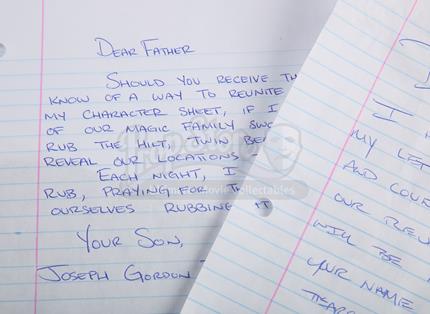 Dear Father
Should you receive th
know of a way to reunite
my character sheet, if I
of our magic family swo
rub the hilt, twin bea
reveal our locations
Each night, I
rub, praying for th
ourselves rubbing it
Your Son,
Joseph Gordon
I h
my let
and cou
our reu
will be
your name
Propstore